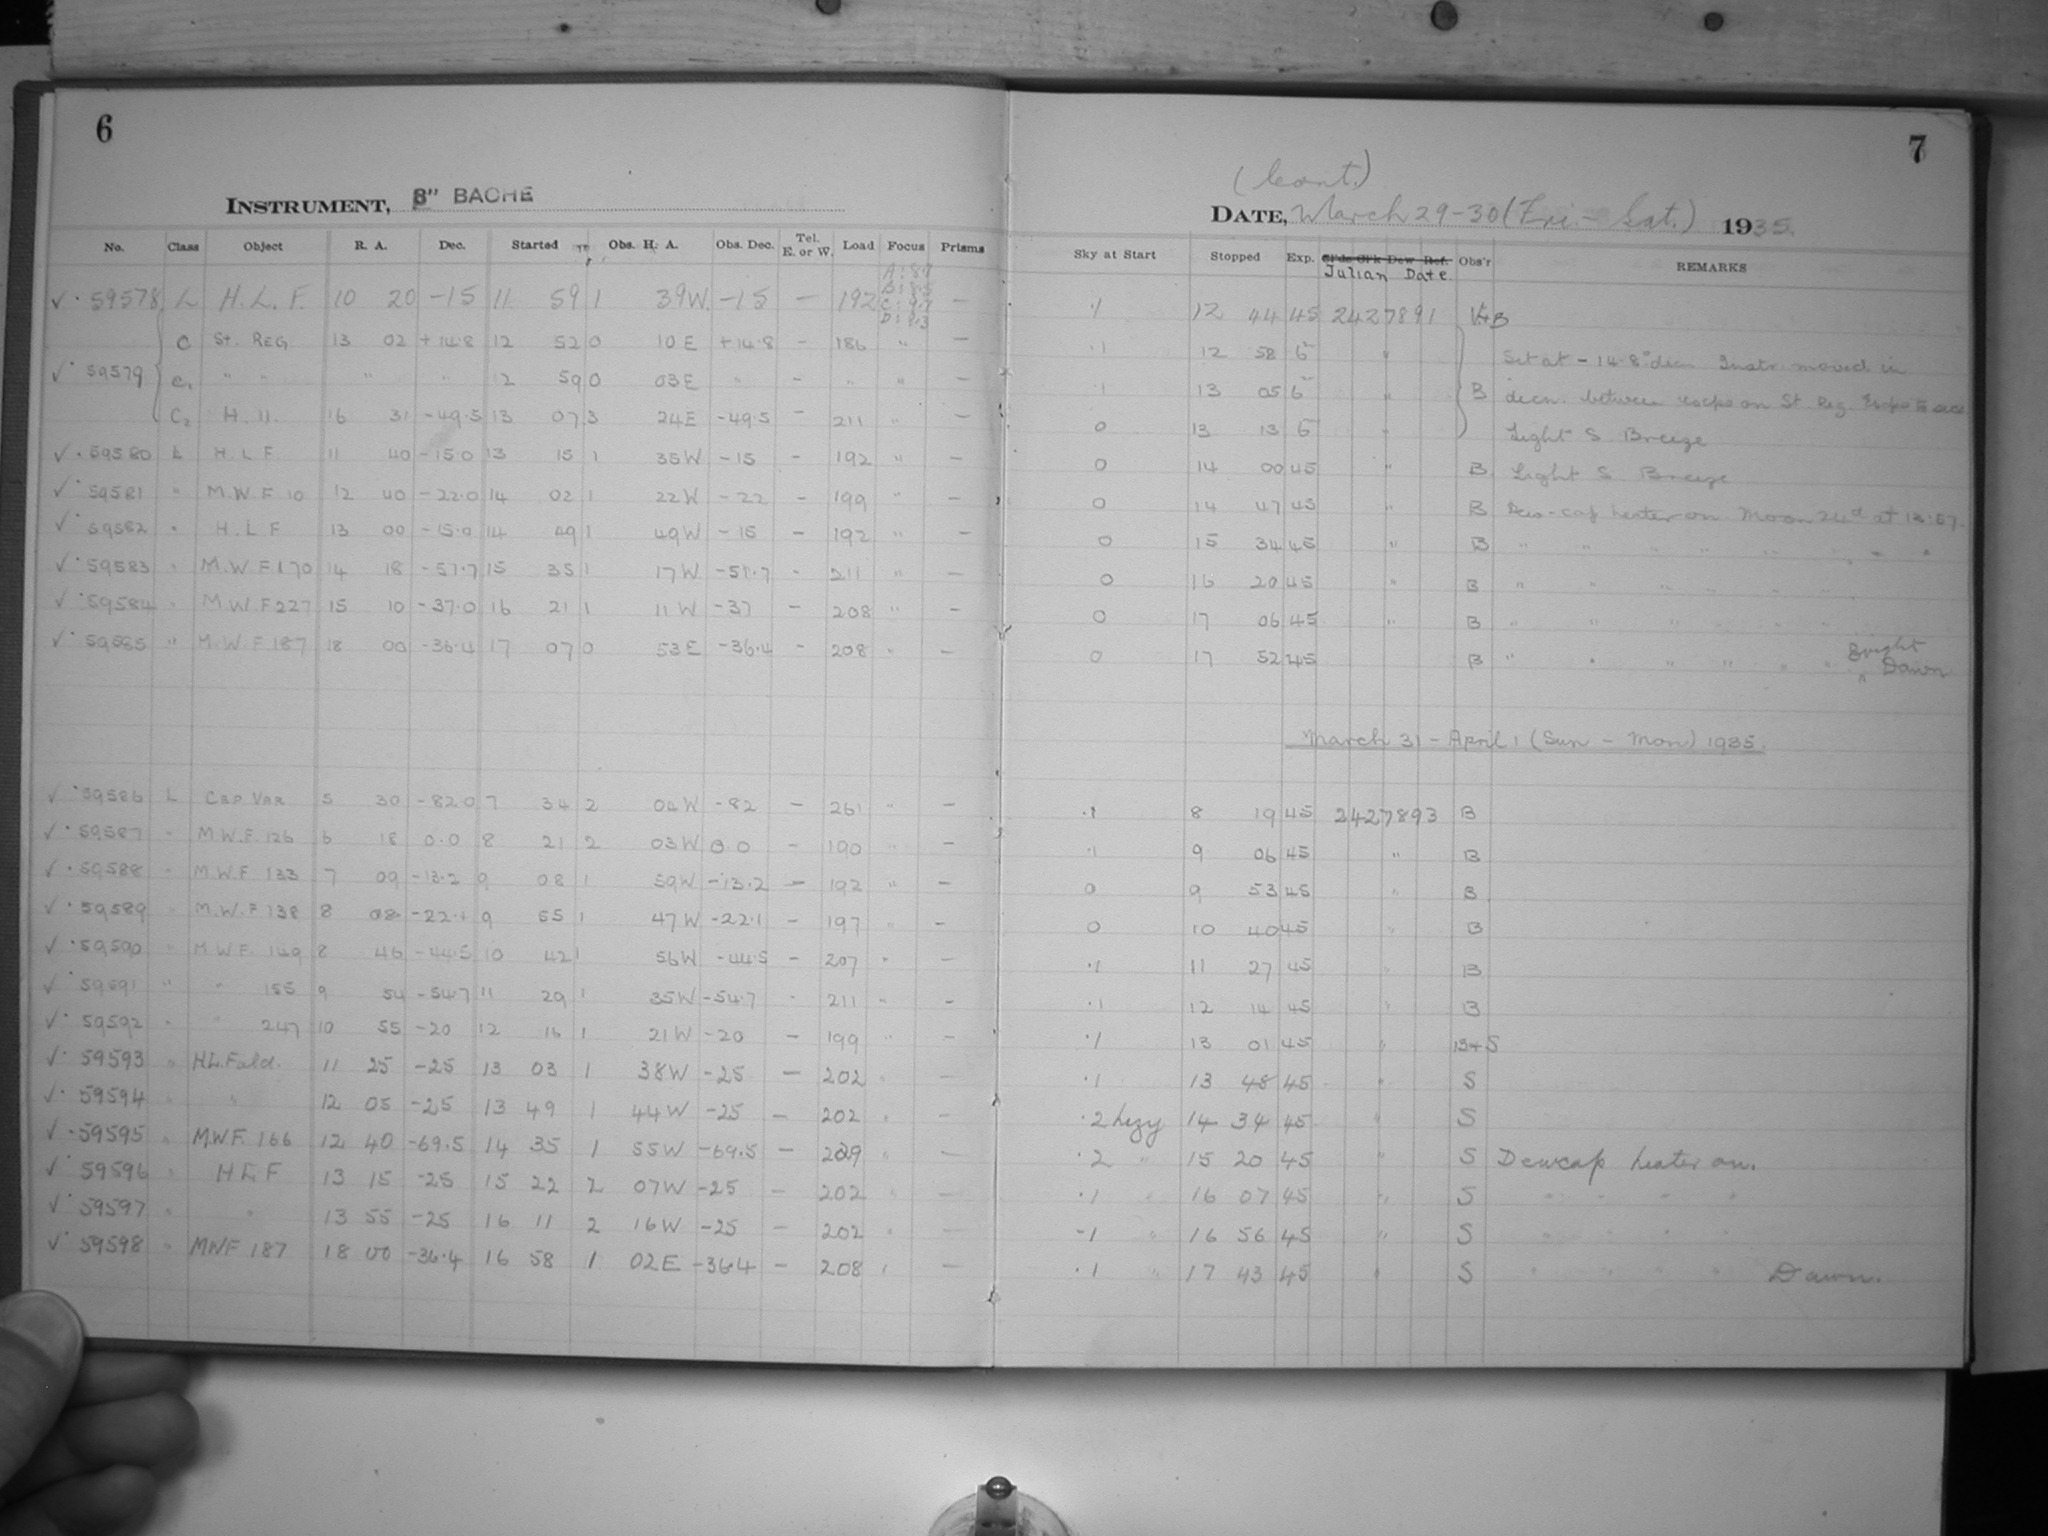 6
INSTRUMENT, 8" BACHE
No. Class Object R. A. Dec. Started Obs. H. A. Obs. Dec. Tel. E. or W. Load Focus Prisms
✓ · 59578 L H. L. F. 10 20 -15 11 59 1 39W. -15 — 192 —
C St. REG. 13 02 +14.8 12 52 0 10E +14.8 - 186 " —
✓ 59579 C₁ " " " " 12 59 0 03E " - " " —
C₂ H. 11. 16 31 -49.5 13 07 3 24E -49.5 - 211 " —
✓ · 59580 L H L F 11 40 -15.0 13 15 1 35W -15 - 192 " —
✓ 59581 " M.W.F 10 12 40 -22.0 14 02 1 22W -22 - 199 " —
✓ 59582 " H. L F 13 00 -15.0 14 49 1 49W -15 — 192 " —
✓ 59583 " M.W.F.170 14 18 -57.7 15 35 1 17W -57.7 - 211 " —
✓ 59584 " M.W.F 227 15 10 -37.0 16 21 1 11W -37 - 208 " —
✓ 59585 " M.W.F 187 18 00 -36.4 17 07 0 53E -36.4 - 208 " —
✓ 59586 L Cap Var 5 30 -82.0 7 34 2 04W -82 — 261 " —
✓ · 59587 " M.W.F. 126 6 18 0.0 8 21 2 03W 0.0 - 190 " —
✓ · 59588 " M.W.F 133 7 09 -13.2 9 08 1 59W -13.2 — 192 " —
✓ · 59589 " M.W.F 138 8 08 -22.1 9 55 1 47W -22.1 - 197 " —
✓ · 59590 " M.W.F. 149 8 46 -44.5 10 42 1 56W -44.5 - 207 " —
✓ · 59591 " " 155 9 54 -54.7 11 29 1 35W -54.7 - 211 " —
✓ · 59592 " " 247 10 55 -20 12 16 1 21W -20 — 199 " —
✓ · 59593 " H.L. Field. 11 25 -25 13 03 1 38W -25 — 202 " —
✓ · 59594 " " 12 05 -25 13 49 1 44W -25 — 202 " —
✓ · 59595 " M.W.F. 166 12 40 -69.5 14 35 1 55W -69.5 — 229 " —
✓ · 59596 " H L F 13 15 -25 15 22 2 07W -25 — 202 " —
✓ · 59597 " " 13 55 -25 16 11 2 16W -25 — 202 " —
✓ · 59598 " MWF 187 18 00 -36.4 16 58 1 02E -36.4 — 208 " —
7
(Cont.)
DATE, March 29-30 (Fri. - Sat.) 1935.
Sky at Start Stopped Exp. Julian Date Obs'r REMARKS
.1 12 44 45 2427891 B
.1 12 58 5 " Set at -14.8° decn Instr. moved in
.1 13 05 5 " B decn. between exps on St. Reg.
0 13 13 5 " Light S Breeze
0 14 00 45 " B. Light S Breeze
0 14 47 45 " B Dew-cap heater on Moon 24d at 13:57
0 15 34 45 " B " " " " " " " "
0 16 20 45 " B " " " " " "
0 17 06 45 " B " " " " " "
0 17 52 45 B " " " " " " Bright Dawn
March 31 - April 1 (Sun - Mon) 1935.
.1 8 19 45 2427893 B
.1 9 06 45 " B
0 9 53 45 " B
0 10 40 45 " B
.1 11 27 45 " B
.1 12 14 45 " B
.1 13 01 45 " B+S
.1 13 48 45 " S
.2 hazy 14 34 45 " S
.2 " 15 20 45 " S Dewcap heater on.
.1 " 16 07 45 " S " " " "
-1 " 16 56 45 " S " " " "
.1 " 17 43 45 " S " " " " Dawn.